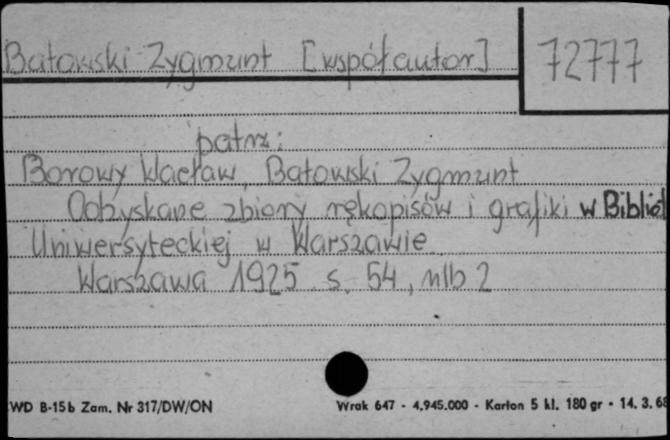 Batowski Zygmunt [współautor] 72777
patrz:
Borowy Wacław, Batowski Zygmunt
Odzyskane zbiory rękopisów i grafiki w Bibliot
Uniwersyteckiej w Warszawie
Warszawa 1925 s. 54, nlb 2
WD B-15b Zam. Nr 317/DW/ON Wrak 647 - 4.945.000 - Karton 5 kl. 180 gr - 14. 3. 68